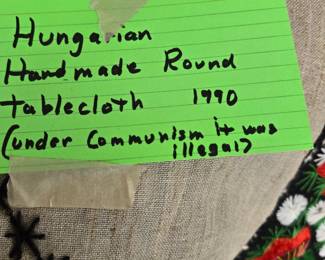 Hungarian
Handmade Round
tablecloth 1990
(under Communism it was
illegal)